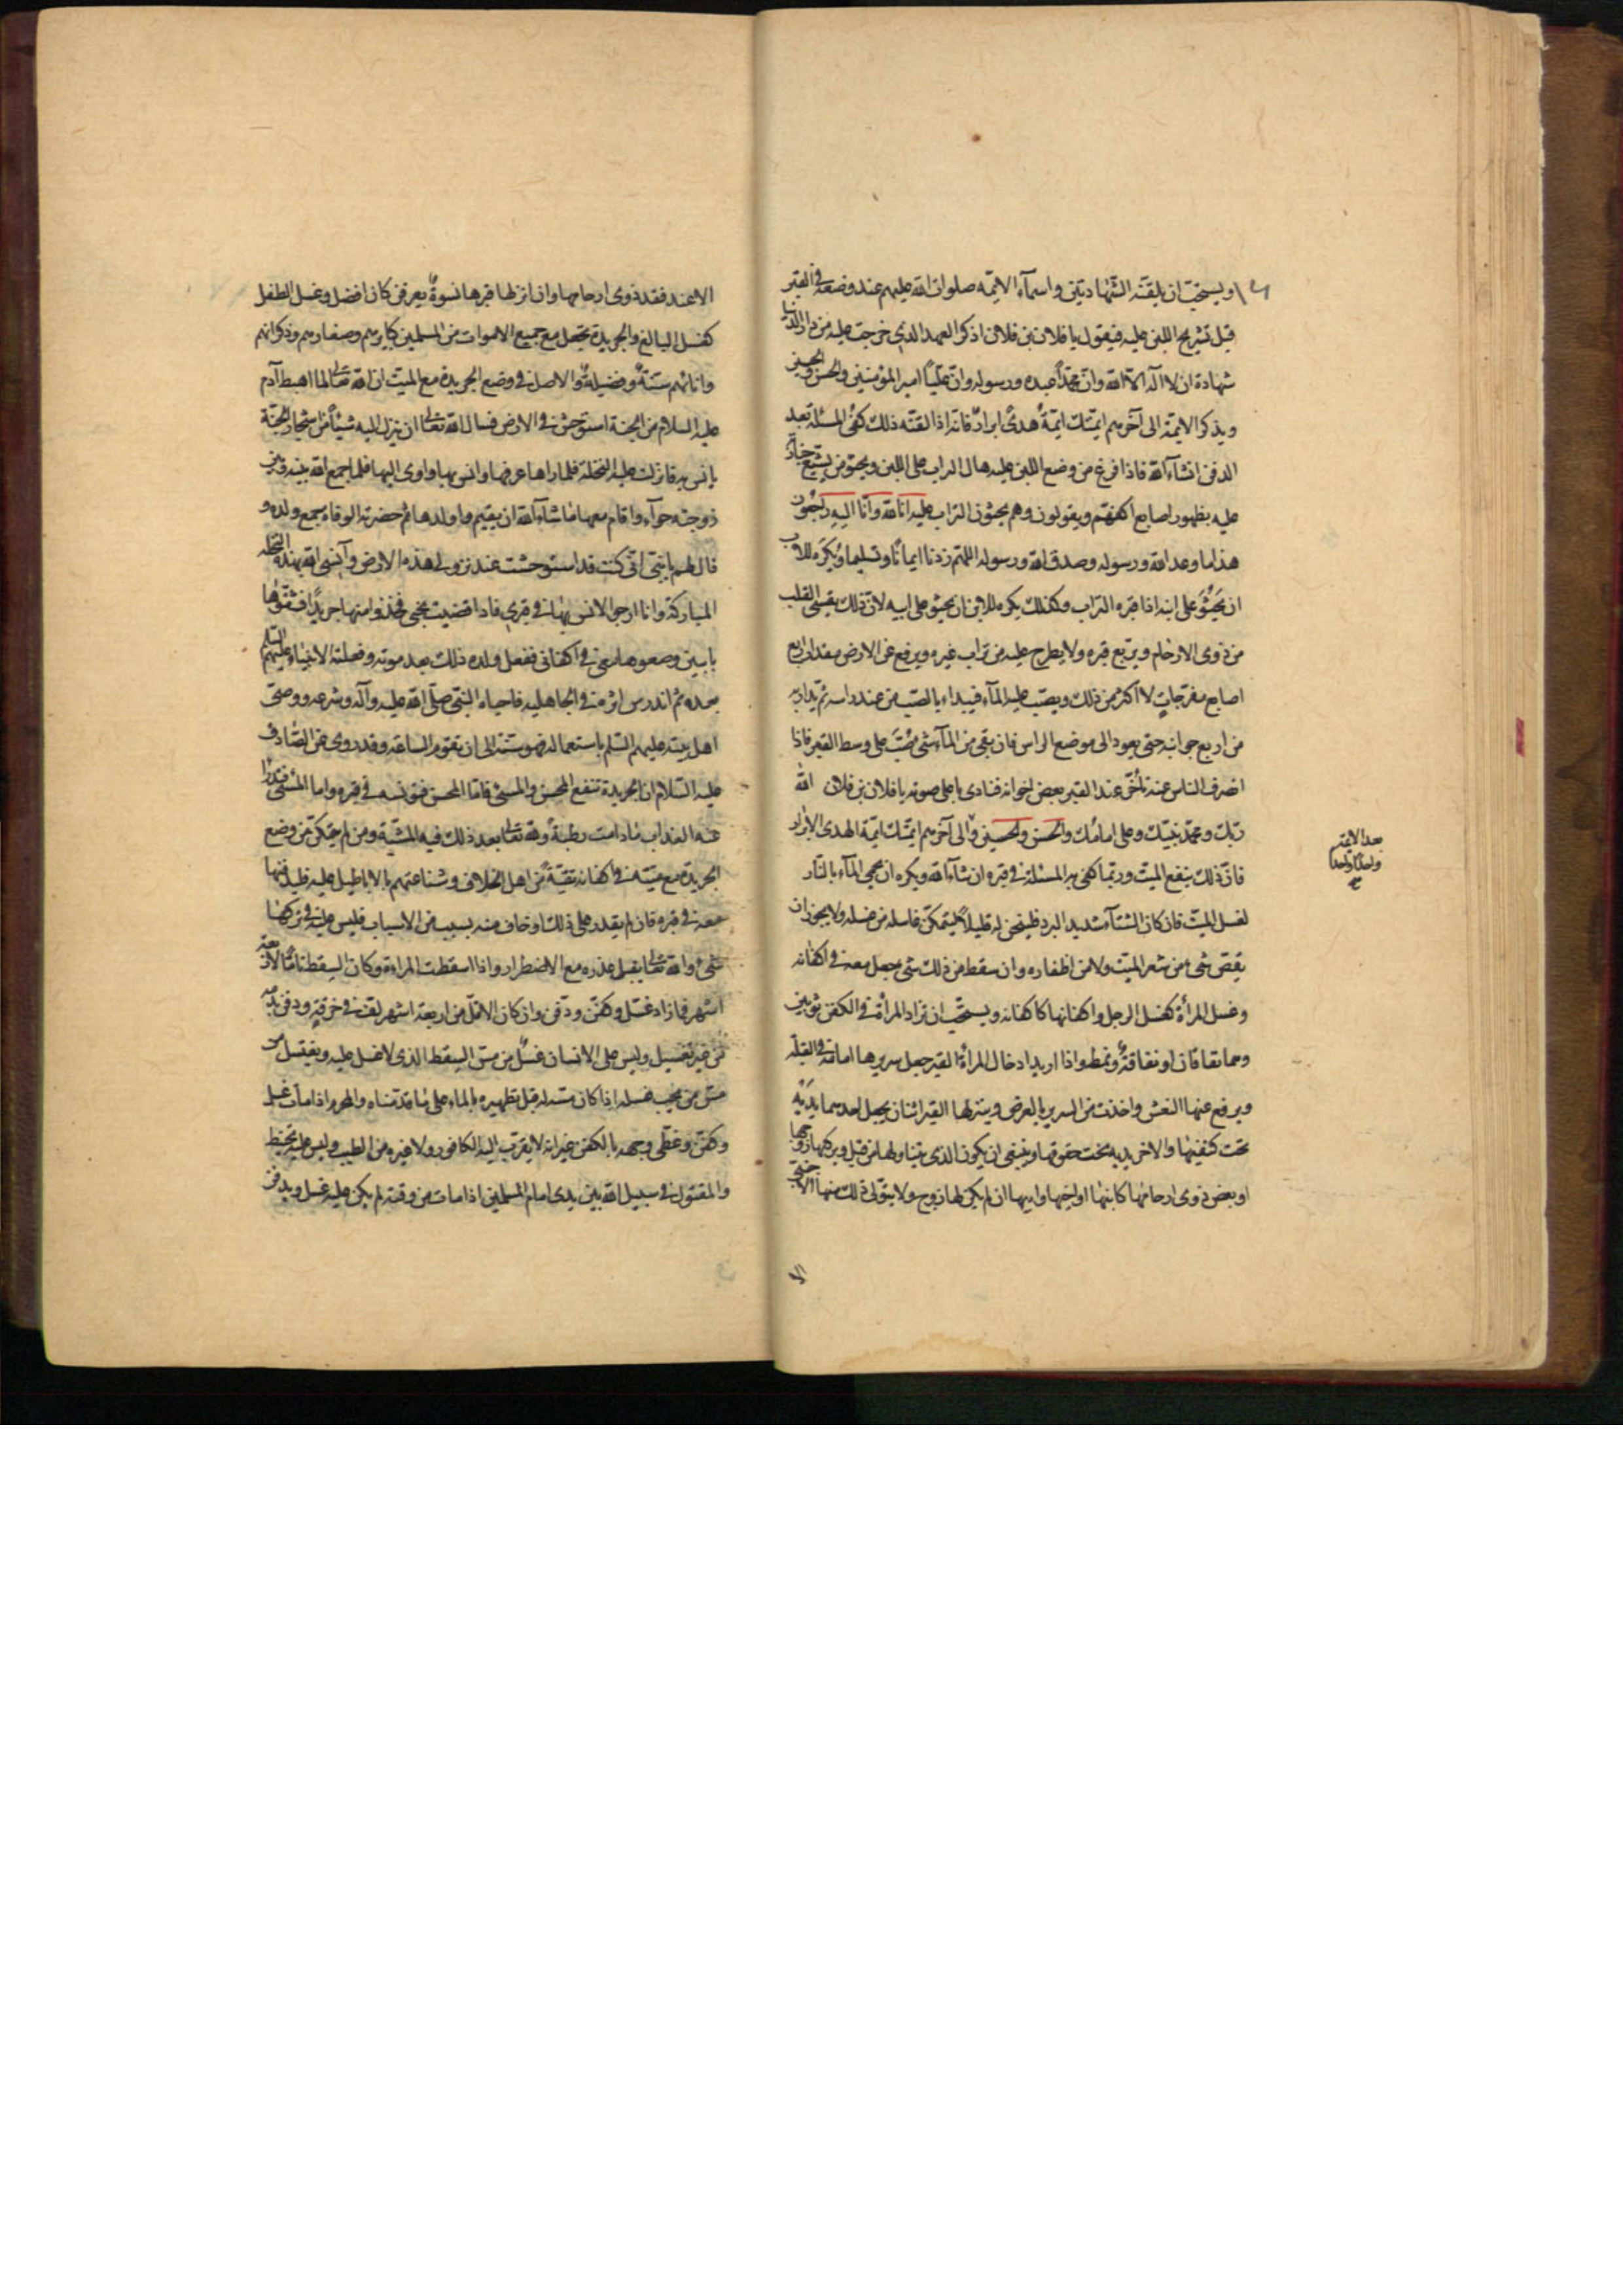 ويستحب ان يلقنه الشهادتين واسمآء الائمه صلوات الله عليهم عند وضعه في القبر
قبل تشريج اللبن عليه فيقول يا فلان بن فلان اذكر العهد الذي خرجت عليه من دار الدنيا
شهادة ان لا اله الا الله وان محمداً عبده ورسوله وان عليّاً امير المؤمنين والحسن والحسين
ويذكر الائمة الى آخرهم ائمتك ائمة هدىً ابرار فانه اذا لقنه ذلك كفى المسئلة بعد
الدفن انشآء الله فاذا فرغ من وضع اللبن عليه هال التراب على اللبن ويحثو من يشيع جنازته
عليه بظهور اصابع اكفهم ويقولون وهم يحثون التراب عليه انا لله وانا اليه راجعون
هذا ما وعد الله ورسوله وصدق الله ورسوله اللهم زدنا ايمانًا وتسليما ويكره للاب
ان يحثو على ابنه اذا قبره التراب وكذلك يكره للابن ان يحثو على ابيه لان ذلك يقسى القلب
من ذوى الارحام ويربع قبره ولا يطرح عليه من تراب غيره ويرفع عن الارض مقدار اربع
اصابع مفرجات لا اكثر من ذلك ويصب عليه المآء فيبداء بالصب من عند راسه ثم يدار به
من اربع جوانبه حتى يعود الى موضع الراس فان بقى من المآء شئ صب على وسط القبر فاذا
انصرف الناس عنه تأخر عند القبر بعض اخوانه فنادى باعلى صوته يا فلان بن فلان الله
ربك ومحمد نبيك وعلى امامك والحسن والحسين والى آخرهم ائمتك ائمة الهدى الابرار
فان ذلك ينفع الميت وربما كفى به المسئلة في قبره ان شآء الله ويكره ان يحمى المآء بالنار
لغسل الميت فان كان الشتآء شديد البرد فليسخن له قليلاً ليتمكن غاسله من غسله ولا يجوز ان
يقص شئ من شعر الميت ولا من اظفاره وان سقط من ذلك شئ جعل معه في اكفانه
وغسل المرأة كغسل الرجل واكفانها كاكفانه ويستحب ان تزاد المرأة في الكفن ثوبين
وهما لفافتان او لفافة ونمط واذا اريد ادخال المرأة القبر جعل سريرها امامه في القبلة
ويرفع عنها النعش واخذت من السرير بالعرض وينزلها القبر اثنان يجعل احدهما يديه
تحت كتفيها والاخر يديه تحت حقوتها وينبغي ان يكون الذى يتناولها من قبل وركيها زوجها
او بعض ذوى ارحامها كابنها او اخيها وابيها ان لم يكن لها زوج ولا يتولى ذلك منها الاجنبي
بعد الائمه
واحدًا واحدًا
الا
الا عند فقد ذوى ارحامها وان انزلها قبرها نسوة يعرفن كان افضل وغسل الطفل
كغسل البالغ والجريدة تجعل مع جميع الاموات من المسلمين كبارهم وصغارهم وذكرانهم
واناثهم سنة وفضيلة والاصل في وضع الجريدة مع الميت ان الله تعالى لما اهبط آدم
عليه السلام من الجنة استوحش في الارض فسال الله تعالى ان ينزل اليه شيئاً من اشجار الجنة
يانس به فانزلت عليه النخلة فلما راها عرفها وانس بها واوى اليها فلما جمع الله بينه وبين
زوجته حوآء واقام معها ما شآء الله ان يقيم واولدها ثم حضرته الوفاة جمع ولده و
قال لهم يا بنى اني كنت قد استوحشت عند نزولى هذه الارض وآنسنى الله بهذه النخلة
المباركة وانا ارجو الانس بها في قبري فاذا قضيت نحبى فخذوا منها جريدًا فشقوها
باثنين وضعوهما معى في اكفانى ففعل ولده ذلك بعد موته وفعلته الانبياء عليهم السلم
بعده ثم اندرس اثره في الجاهليه فاحياه النبى صلى الله عليه وآله وشرعه ووصى
اهل بيته عليهم السلم باستعماله فهو سنة الى ان تقوم الساعة وقد روى عن الصادق
عليه السلام ان الجريدة تنفع المحسن والمسئ فاما المحسن فتونسه في قبره واما المسئ فتدرأ
عنه العذاب مادامت رطبة ولله تعالى بعد ذلك فيه المشية ومن لم يتمكن من وضع
الجريدة مع ميته في اكفانه تقية من اهل الخلاف وشناعتهم بالاباطيل عليه فليدفنها
معه في قبره فان لم يقدر على ذلك او خاف منه بسبب من الاسباب فليس عليه في تركها
شئ والله تعالى يقبل عذره مع الاضطرار واذا اسقطت المراءة وكان السقط تامًا لاربعة
اشهر فمازاد غسل وكفن ودفن وان كان الاقل من اربعة اشهر لف في خرقة ودفن بدمه
من غير تغسيل وليس على الانسان غسل من مس السقط الذى لا غسل عليه ويغتسل من
مس من يجب غسله اذا كان مسه له قبل تطهيره بالماء على ما قدمناه والمحرم اذا مات غسل
وكفن وغطى وجهه بالكفن غير انه لا يقرب اليه الكافور ولا غيره من الطيب وليس عليه تحنيط
والمقتول في سبيل الله بين يدى امام المسلمين اذا مات من وقته لم يكن عليه غسل ويدفن